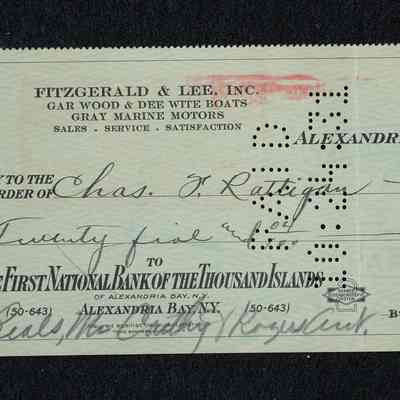 FITZGERALD & LEE, INC.
GAR WOOD & DEE WITE BOATS
GRAY MARINE MOTORS
SALES - SERVICE - SATISFACTION
ALEXANDRIA
Y TO THE
RDER OF Chas. T. Rattigan
Twenty five and 00/100
TO
E FIRST NATIONAL BANK OF THE THOUSAND ISLANDS
OF ALEXANDRIA BAY, N.Y.
(50-643) ALEXANDRIA BAY, N.Y. (50-643)
PAID
B